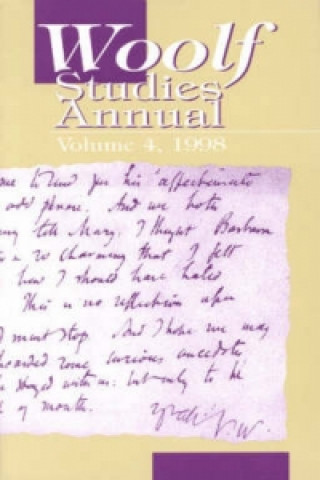 Woolf
Studies
Annual
Volume 4, 1998
me to send you his "affectionate
odd phrase. And we both
tell Mary. I thought Barbara
so charming that I felt
how I should have hated
This is no reflection upon
I must stop. And I hope we may
some curious anecdotes,
stayed with us: but only to be
of month.
V.W.